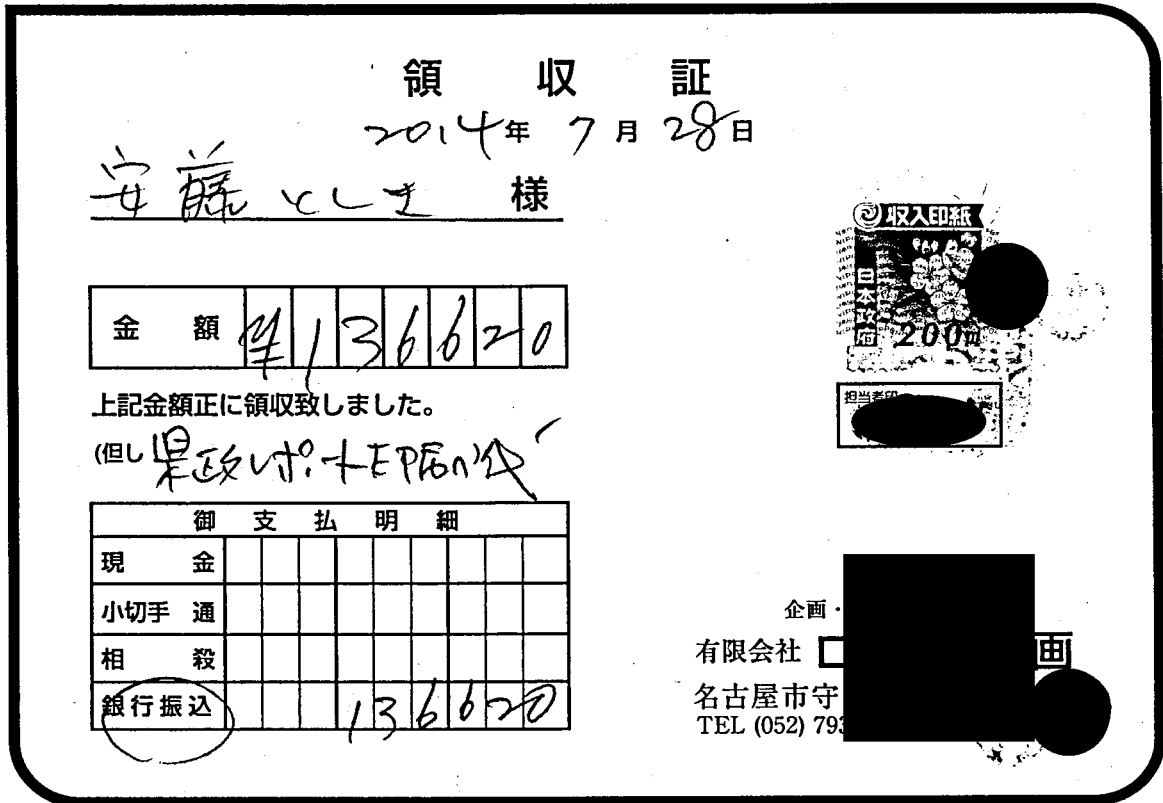 領収証
2014年 7月 28日
安藤としき 様
金額 ¥136620
上記金額正に領収致しました。
(但し 県政レポート印刷代
御支払明細
現金
小切手 通
相殺
銀行振込 136620
収入印紙
日本政府
200円
担当者印
企画・
有限会社
画
名古屋市守
TEL (052) 793